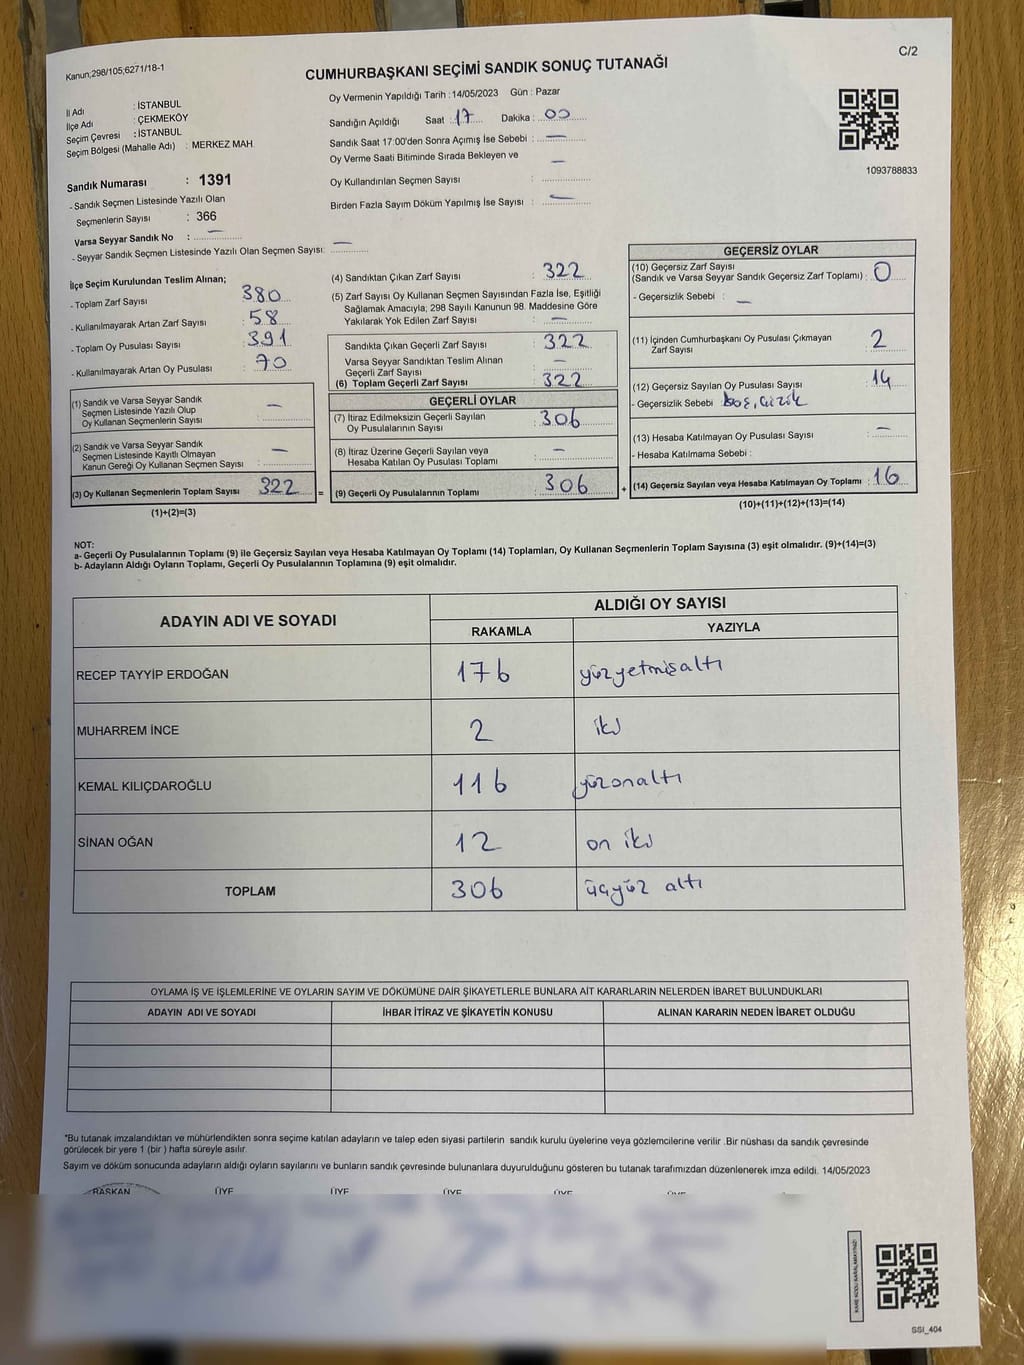 C/2
Kanun;298/105;6271/18-1
CUMHURBAŞKANI SEÇİMİ SANDIK SONUÇ TUTANAĞI
Oy Vermenin Yapıldığı Tarih :14/05/2023 Gün : Pazar
İl Adı : İSTANBUL
İlçe Adı : ÇEKMEKÖY
Seçim Çevresi : İSTANBUL
Seçim Bölgesi (Mahalle Adı) : MERKEZ MAH.
Sandık Numarası : 1391
- Sandık Seçmen Listesinde Yazılı Olan
Seçmenlerin Sayısı : 366
Varsa Seyyar Sandık No : —
- Seyyar Sandık Seçmen Listesinde Yazılı Olan Seçmen Sayısı: —
Sandığın Açıldığı Saat : 17 Dakika : 00
Sandık Saat 17:00'den Sonra Açımış İse Sebebi : —
Oy Verme Saati Bitiminde Sırada Bekleyen ve
Oy Kullandırılan Seçmen Sayısı : —
Birden Fazla Sayım Döküm Yapılmış İse Sayısı : —
1093788833
İlçe Seçim Kurulundan Teslim Alınan;
- Toplam Zarf Sayısı : 380
- Kullanılmayarak Artan Zarf Sayısı : 58
- Toplam Oy Pusulası Sayısı : 391
- Kullanılmayarak Artan Oy Pusulası : 70
(1) Sandık ve Varsa Seyyar Sandık
Seçmen Listesinde Yazılı Olup
Oy Kullanan Seçmenlerin Sayısı : —
(2) Sandık ve Varsa Seyyar Sandık
Seçmen Listesinde Kayıtlı Olmayan
Kanun Gereği Oy Kullanan Seçmen Sayısı : —
(3) Oy Kullanan Seçmenlerin Toplam Sayısı : 322 =
(1)+(2)=(3)
(4) Sandıktan Çıkan Zarf Sayısı : 322
(5) Zarf Sayısı Oy Kullanan Seçmen Sayısından Fazla İse, Eşitliği
Sağlamak Amacıyla, 298 Sayılı Kanunun 98. Maddesine Göre
Yakılarak Yok Edilen Zarf Sayısı : —
Sandıkta Çıkan Geçerli Zarf Sayısı : 322
Varsa Seyyar Sandıktan Teslim Alınan
Geçerli Zarf Sayısı : —
(6) Toplam Geçerli Zarf Sayısı : 322
GEÇERLİ OYLAR
(7) İtiraz Edilmeksizin Geçerli Sayılan
Oy Pusulalarının Sayısı : 306
(8) İtiraz Üzerine Geçerli Sayılan veya
Hesaba Katılan Oy Pusulası Toplamı : —
(9) Geçerli Oy Pusulalarının Toplamı : 306 +
GEÇERSİZ OYLAR
(10) Geçersiz Zarf Sayısı
(Sandık ve Varsa Seyyar Sandık Geçersiz Zarf Toplamı) : 0
- Geçersizlik Sebebi : —
(11) İçinden Cumhurbaşkanı Oy Pusulası Çıkmayan
Zarf Sayısı : 2
(12) Geçersiz Sayılan Oy Pusulası Sayısı : 14
- Geçersizlik Sebebi : boş, çizik
(13) Hesaba Katılmayan Oy Pusulası Sayısı : —
- Hesaba Katılmama Sebebi :
(14) Geçersiz Sayılan veya Hesaba Katılmayan Oy Toplamı : 16
(10)+(11)+(12)+(13)=(14)
NOT:
a- Geçerli Oy Pusulalarının Toplamı (9) ile Geçersiz Sayılan veya Hesaba Katılmayan Oy Toplamı (14) Toplamları, Oy Kullanan Seçmenlerin Toplam Sayısına (3) eşit olmalıdır. (9)+(14)=(3)
b- Adayların Aldığı Oyların Toplamı, Geçerli Oy Pusulalarının Toplamına (9) eşit olmalıdır.
ADAYIN ADI VE SOYADI ALDIĞI OY SAYISI
RAKAMLA YAZIYLA
RECEP TAYYİP ERDOĞAN 176 yüzyetmişaltı
MUHARREM İNCE 2 iki
KEMAL KILIÇDAROĞLU 116 yüzonaltı
SİNAN OĞAN 12 on iki
TOPLAM 306 üçyüz altı
OYLAMA İŞ VE İŞLEMLERİNE VE OYLARIN SAYIM VE DÖKÜMÜNE DAİR ŞİKAYETLERLE BUNLARA AİT KARARLARIN NELERDEN İBARET BULUNDUKLARI
ADAYIN ADI VE SOYADI İHBAR İTİRAZ VE ŞİKAYETİN KONUSU ALINAN KARARIN NEDEN İBARET OLDUĞU
*Bu tutanak imzalandıktan ve mühürlendikten sonra seçime katılan adayların ve talep eden siyasi partilerin sandık kurulu üyelerine veya gözlemcilerine verilir .Bir nüshası da sandık çevresinde
görülecek bir yere 1 (bir ) hafta süreyle asılır.
Sayım ve döküm sonucunda adayların aldığı oyların sayılarını ve bunların sandık çevresinde bulunanlara duyurulduğunu gösteren bu tutanak tarafımızdan düzenlenerek imza edildi. 14/05/2023
BAŞKAN ÜYE ÜYE ÜYE ÜYE ÜYE
KARE KODU KARALAMAYINIZ!
SSI_404